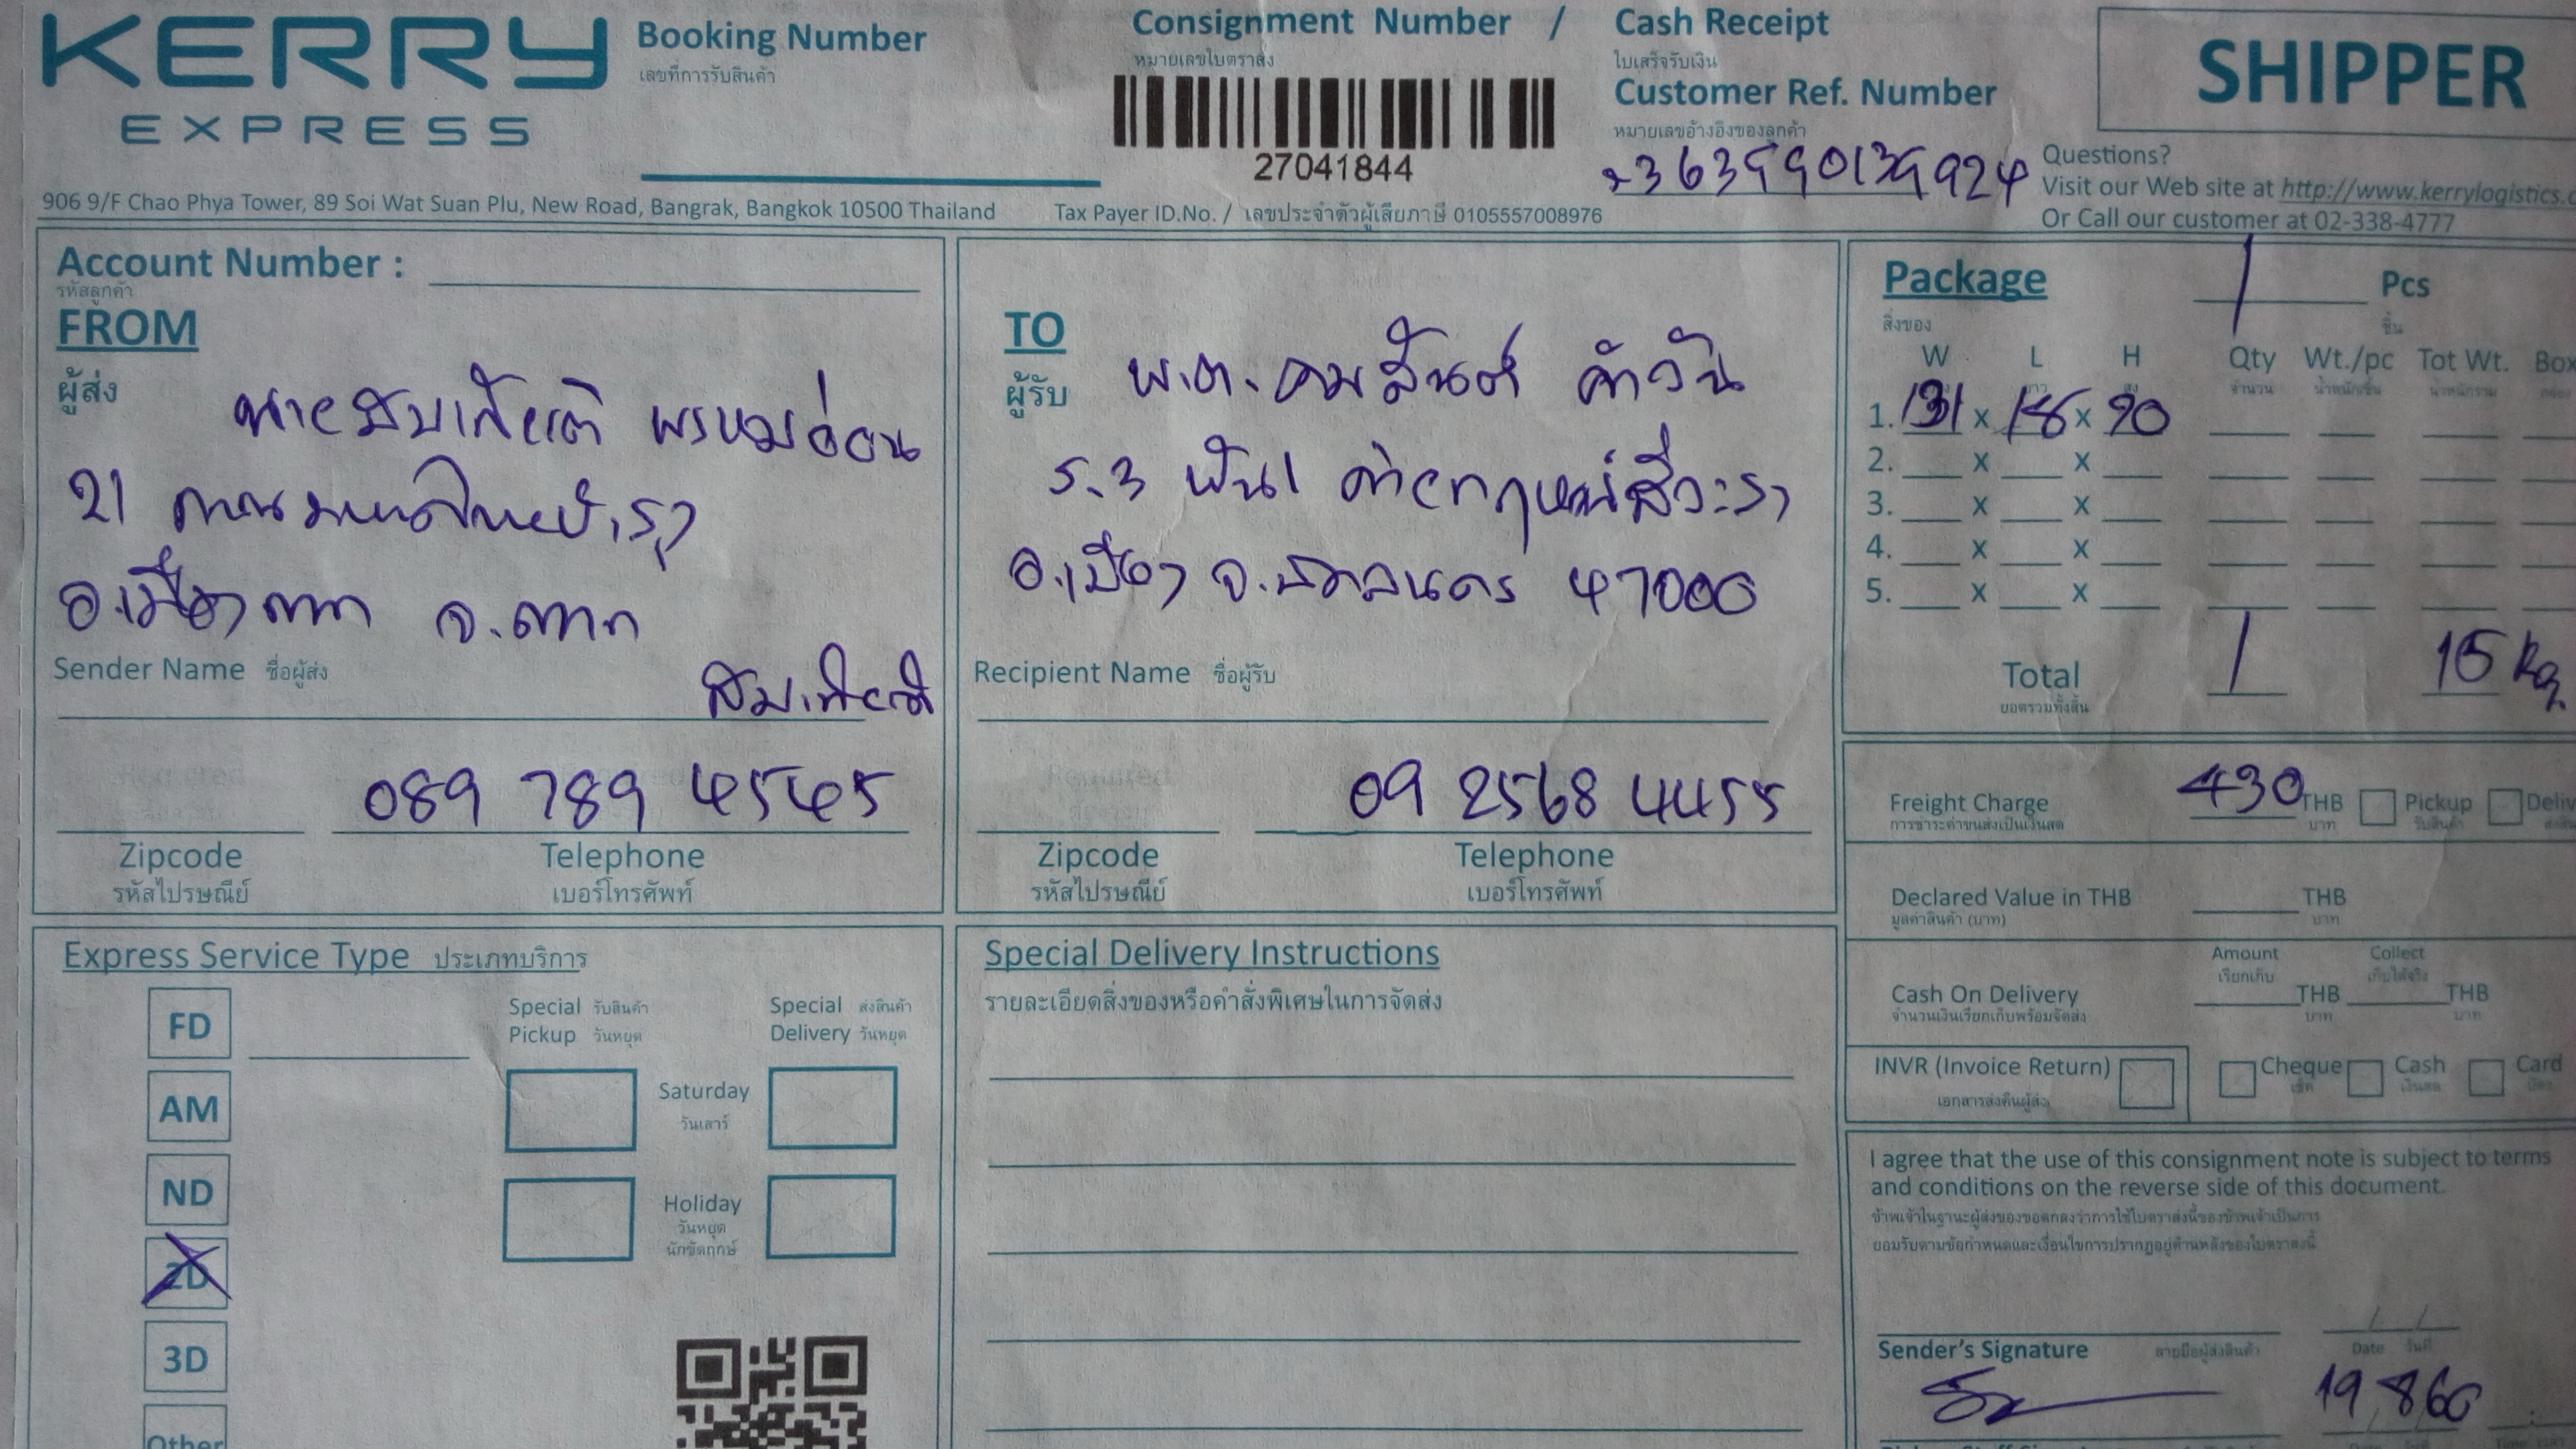 KERRY
EXPRESS
Booking Number
เลขที่การรับสินค้า
Consignment Number /
หมายเลขใบตราส่ง
27041844
Cash Receipt
ใบเสร็จรับเงิน
Customer Ref. Number
หมายเลขอ้างอิงของลูกค้า
SHIPPER
Questions?
Visit our Web site at http://www.kerrylogistics.c
Or Call our customer at 02-338-4777
906 9/F Chao Phya Tower, 89 Soi Wat Suan Plu, New Road, Bangrak, Bangkok 10500 Thailand
Tax Payer ID.No. / เลขประจำตัวผู้เสียภาษี 0105557008976
Account Number :
รหัสลูกค้า
FROM
ผู้ส่ง
นายสมเกียรติ พรหมอ่อน
21 ถนนมหาดไทยบำรุง
อ.เมืองตาก จ.ตาก
Sender Name ชื่อผู้ส่ง
สมเกียรติ
089 789 4545
Zipcode
รหัสไปรษณีย์
Telephone
เบอร์โทรศัพท์
TO
ผู้รับ
พ.ต. คมสันต์ คำวัน
ร.3 พัน1 ค่ายกฤษณ์สีวะรา
อ.เมือง จ.สกลนคร 47000
Recipient Name ชื่อผู้รับ
09 2568 4455
Zipcode
รหัสไปรษณีย์
Telephone
เบอร์โทรศัพท์
Package
สิ่งของ
1 Pcs
ชิ้น
W L H Qty Wt./pc Tot Wt. Box
จำนวน น้ำหนัก/ชิ้น น้ำหนักรวม
1. x x 90
2. x x
3. x x
4. x x
5. x x
Total 1 15 kg.
ยอดรวมทั้งสิ้น
Freight Charge 430 THB Pickup Deliv
การชำระค่าขนส่งเป็นเงินสด บาท รับสินค้า
Declared Value in THB THB
มูลค่าสินค้า (บาท) บาท
Amount Collect
เรียกเก็บ เก็บได้จริง
Cash On Delivery THB THB
จำนวนเงินเรียกเก็บพร้อมจัดส่ง บาท บาท
INVR (Invoice Return) Cheque Cash Card
เอกสารส่งคืนผู้ส่ง เช็ค เงินสด บัตร
Express Service Type ประเภทบริการ
Special รับสินค้า
Pickup วันหยุด
Special ส่งสินค้า
Delivery วันหยุด
FD
AM
ND
2D
3D
Other
Saturday
วันเสาร์
Holiday
วันหยุด
นักขัตฤกษ์
Special Delivery Instructions
รายละเอียดสิ่งของหรือคำสั่งพิเศษในการจัดส่ง
I agree that the use of this consignment note is subject to terms
and conditions on the reverse side of this document.
ข้าพเจ้าในฐานะผู้ส่งของขอตกลงว่าการใช้ใบตราส่งนี้ของข้าพเจ้าเป็นการ
ยอมรับตามข้อกำหนดและเงื่อนไขการปรากฏอยู่ด้านหลังของใบตราส่งนี้
Sender's Signature ลายมือผู้ส่งสินค้า Date วันที่
19 8 60